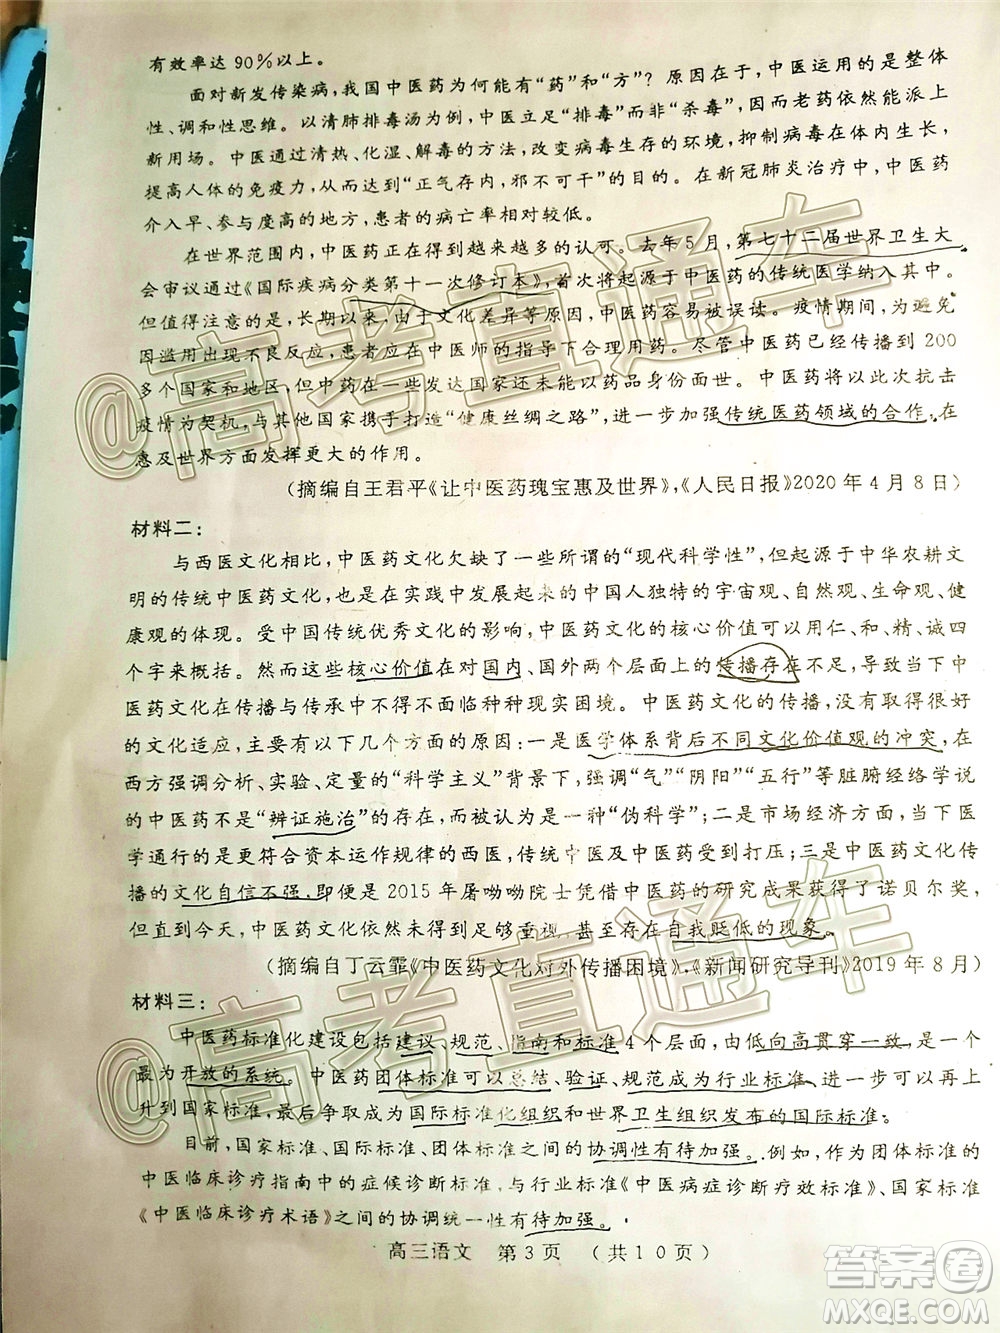 有效率达 90%以上。
面对新发传染病,我国中医药为何能有“药”和“方”?原因在于,中医运用的是整体
性、调和性思维。以清肺排毒汤为例,中医立足“排毒”而非“杀毒”,因而老药依然能派上
新用场。中医通过清热、化湿、解毒的方法,改变病毒生存的环境,抑制病毒在体内生长,
提高人体的免疫力,从而达到“正气存内,邪不可干”的目的。在新冠肺炎治疗中,中医药
介入早、参与度高的地方,患者的病亡率相对较低。
在世界范围内,中医药正在得到越来越多的认可。去年5月,第七十二届世界卫生大
会审议通过《国际疾病分类第十一次修订本》,首次将起源于中医药的传统医学纳入其中。
但值得注意的是,长期以来,由于文化差异等原因,中医药容易被误读。疫情期间,为避免
因滥用出现不良反应,患者应在中医师的指导下合理用药。尽管中医药已经传播到 200
多个国家和地区,但中药在一些发达国家还未能以药品身份面世。中医药将以此次抗击
疫情为契机,与其他国家携手打造“健康丝绸之路”,进一步加强传统医药领域的合作,在
惠及世界方面发挥更大的作用。
(摘编自王君平《让中医药瑰宝惠及世界》,《人民日报》2020 年 4 月 8 日)
材料二:
与西医文化相比,中医药文化欠缺了一些所谓的“现代科学性”,但起源于中华农耕文
明的传统中医药文化,也是在实践中发展起来的中国人独特的宇宙观、自然观、生命观、健
康观的体现。受中国传统优秀文化的影响,中医药文化的核心价值可以用仁、和、精、诚四
个字来概括。然而这些核心价值在对国内、国外两个层面上的传播存在不足,导致当下中
医药文化在传播与传承中不得不面临种种现实困境。中医药文化的传播,没有获得很好
的文化适应,主要有以下几个方面的原因:一是医学体系背后不同文化价值观的冲突,在
西方强调分析、实验、定量的“科学主义”背景下,强调“气”“阴阳”“五行”等脏腑经络学说
的中医药不是“辨证施治”的存在,而被认为是一种“伪科学”;二是市场经济方面,当下医
学通行的是更符合资本运作规律的西医,传统中医及中医药受到打压;三是中医药文化传
播的文化自信不强,即便是 2015 年屠呦呦院士凭借中医药的研究成果获得了诺贝尔奖,
但直到今天,中医药文化依然未得到足够重视,甚至存在自我贬低的现象。
(摘编自丁云霏《中医药文化对外传播困境》,《新闻研究导刊》2019 年 8 月)
材料三:
中医药标准化建设包括建议、规范、指南和标准 4 个层面,由低向高贯穿一致,是一个
最为开放的系统。中医药团体标准可以总结、验证、规范成为行业标准,进一步可以再上
升到国家标准,最后争取成为国际标准化组织和世界卫生组织发布的国际标准。
目前,国家标准、国际标准、团体标准之间的协调性有待加强。例如,作为团体标准的
中医临床诊疗指南中的症候诊断标准,与行业标准《中医病症诊断疗效标准》、国家标准
《中医临床诊疗术语》之间的协调统一性有待加强。
高三语文 第3页 (共10页)
@高考直通车
@高考直通车
答案圈
MXQE.COM